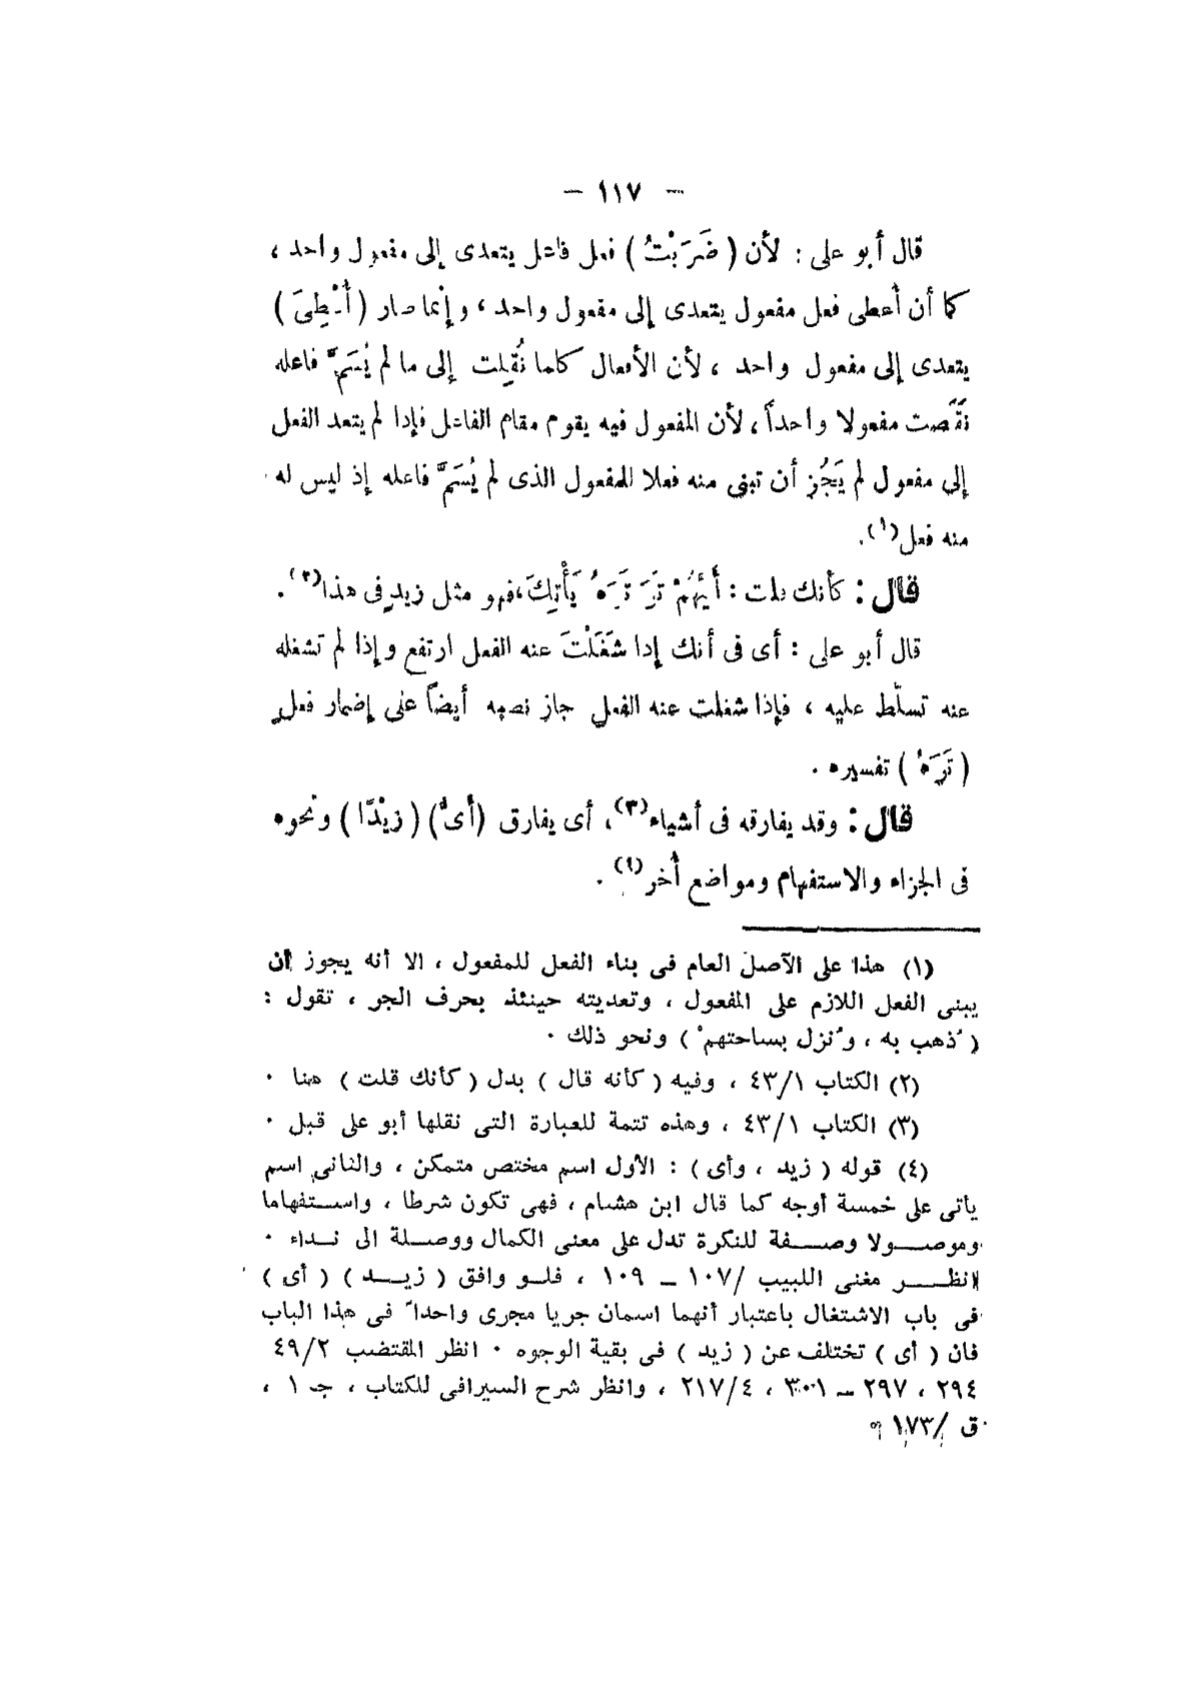 — ١١٧ —
قال أبو على : لأن ( ضَرَبْتُ ) فعل فاعل يتعدى إلى مفعول واحد ،
كما أن أُعطى فعل مفعول يتعدى إلى مفعول واحد ، وإنما صار ( أُعْطِىَ )
يتعدى إلى مفعول واحد ، لأن الأفعال كلما نُقِلت إلى ما لم يُسَمَّ فاعله
نَقَصت مفعولا واحداً ، لأن المفعول فيه يقوم مقام الفاعل فإذا لم يتعد الفعل
إلى مفعول لم يَجُز أن تبنى منه فعلا للمفعول الذى لم يُسَمَّ فاعله إذ ليس له
منه فعل(١).
قال : كأنك قلت : أَيَّهُمْ تَرَ تَرَهُ يَأْتِكَ ، فهو مثل زيدٍ فى هذا(٢) .
قال أبو على : أى فى أنك إذا شَغَلْتَ عنه الفعل ارتفع وإذا لم تشغله
عنه تسلّط عليه ، فإذا شغلت عنه الفعل جاز نصبه أيضاً على إضمار فعلٍ
( تَرَهُ ) تفسيره .
قال : وقد يفارقه فى أشياء(٣)، أى يفارق (أىٌّ) ( زيْدًا ) ونحوه
فى الجزاء والاستفهام ومواضع أُخر(٤) .
(١) هذا على الأصل العام فى بناء الفعل للمفعول ، الا أنه يجوز ان
يبنى الفعل اللازم على المفعول ، وتعديته حينئذ بحرف الجر ، تقول :
( ُذهب به ، و ُنزل بساحتهم ْ ) ونحو ذلك .
(٢) الكتاب ٤٣/١ ، وفيه ( كأنه قال ) بدل ( كأنك قلت ) هنا .
(٣) الكتاب ٤٣/١ ، وهذه تتمة للعبارة التى نقلها أبو على قبل .
(٤) قوله ( زيد ، وأى ) : الأول اسم مختص متمكن ، والثانى اسم
يأتى على خمسة أوجه كما قال ابن هشام ، فهى تكون شرطا ، واستفهاما
وموصولا وصفة للنكرة تدل على معنى الكمال ووصلة الى نداء .
انظر مغنى اللبيب /١٠٧ – ١٠٩ ، فلو وافق ( زيد ) ( أى )
فى باب الاشتغال باعتبار أنهما اسمان جريا مجرى واحدا ً فى هذا الباب
فان ( أى ) تختلف عن ( زيد ) فى بقية الوجوه . انظر المقتضب ٤٩/٢
٢٩٤ ، ٢٩٧ – ٣٠١ ، ٢١٧/٤ ، وانظر شرح السيرافى للكتاب ، جـ ١ ،
ق /١٧٣